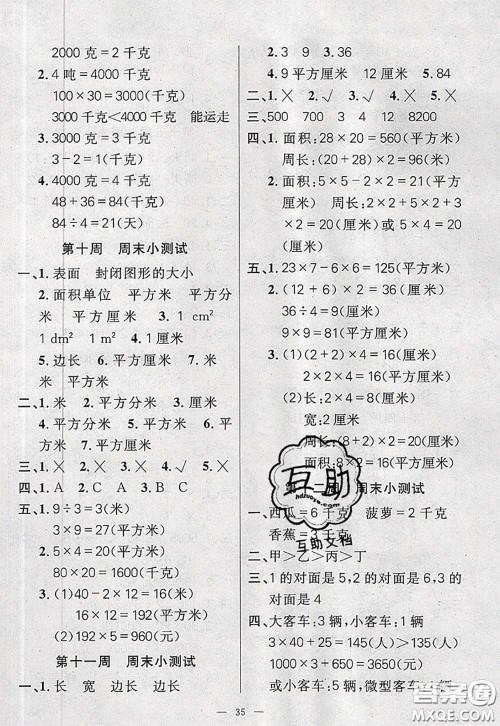 2000 克＝2 千克
2. 4 吨＝4000 千克
100×30＝3000(千克)
3000 千克＜4000 千克　能运走
3. 3000 克＝3 千克
3－2＝1(千克)
4. 4000 克＝4 千克
48＋36＝84(千克)
84÷4＝21(天)
第十周　周末小测试
一、1. 表面　封闭图形的大小
2. 面积单位　平方米　平方分
米　平方厘米　3. 1 cm²
1 dm²　1 m²　4. 1 厘米
5. 边长　6. 平方厘米　平方
米　平方分米
二、1. 米　2. 平方分米　3. 厘米
4. 平方分米　5. 平方厘米　6. 平
方米
三、1. ╳　2. ╳　3. ╳　4. ╳　5. ╳
四、1. A　2. C　3. C　4. A
五、1. 9÷3＝3(米)
3×9＝27(平方米)
2. 54－2＝52(米)
20×80＝1600(千克)
3. (1) 40÷2－12＝8(米)
16×12＝192(平方米)
(2) 192×5＝960(元)
第十一周　周末小测试
一、1. 长　宽　边长　边长
2. 3　9　3. 36
4. 9 平方厘米　12 厘米　5. 84
二、1. ╳　2. ╳　3. ╳　4. ╳
三、500　700　3　4　12　8200
四、1. 面积：28×20＝560(平方米)
周长：(20＋28)×2＝96(米)
2. 面积：5×5－2×2＝21(平
方米)　周长：2×2＋5×2＋
(5－2)×2＝20(米)或 5×4＝
20(米)
五、1. 23×7－6×6＝125(平方米)
2. (6＋12)×2÷4＝9(厘米)
9×9＝81(平方厘米)
3. (1)(2＋2)×2×4＝16(厘米)
2×2×4＝16(平方厘米)
(2) 长：2×4＝8(厘米)
宽：2 厘米
周长：(8＋2)×2＝20(厘米)
面积：8×2＝16(平方厘米)
周末小测试
一、西瓜＝6 千克　菠萝＝2 千克
香蕉＝3 千克
二、甲＞乙＞丙＞丁
三、1 的对面是 5，2 的对面是 6，3
的对面是 4
四、大客车：3 辆，小客车：1 辆
3×40＋25＝145(人)＞135(人)
1000×3＋650＝3650(元)
或小客车：3 辆，微型客车
互助
互助文档
答案圈
MXQE.COM
— 35 —